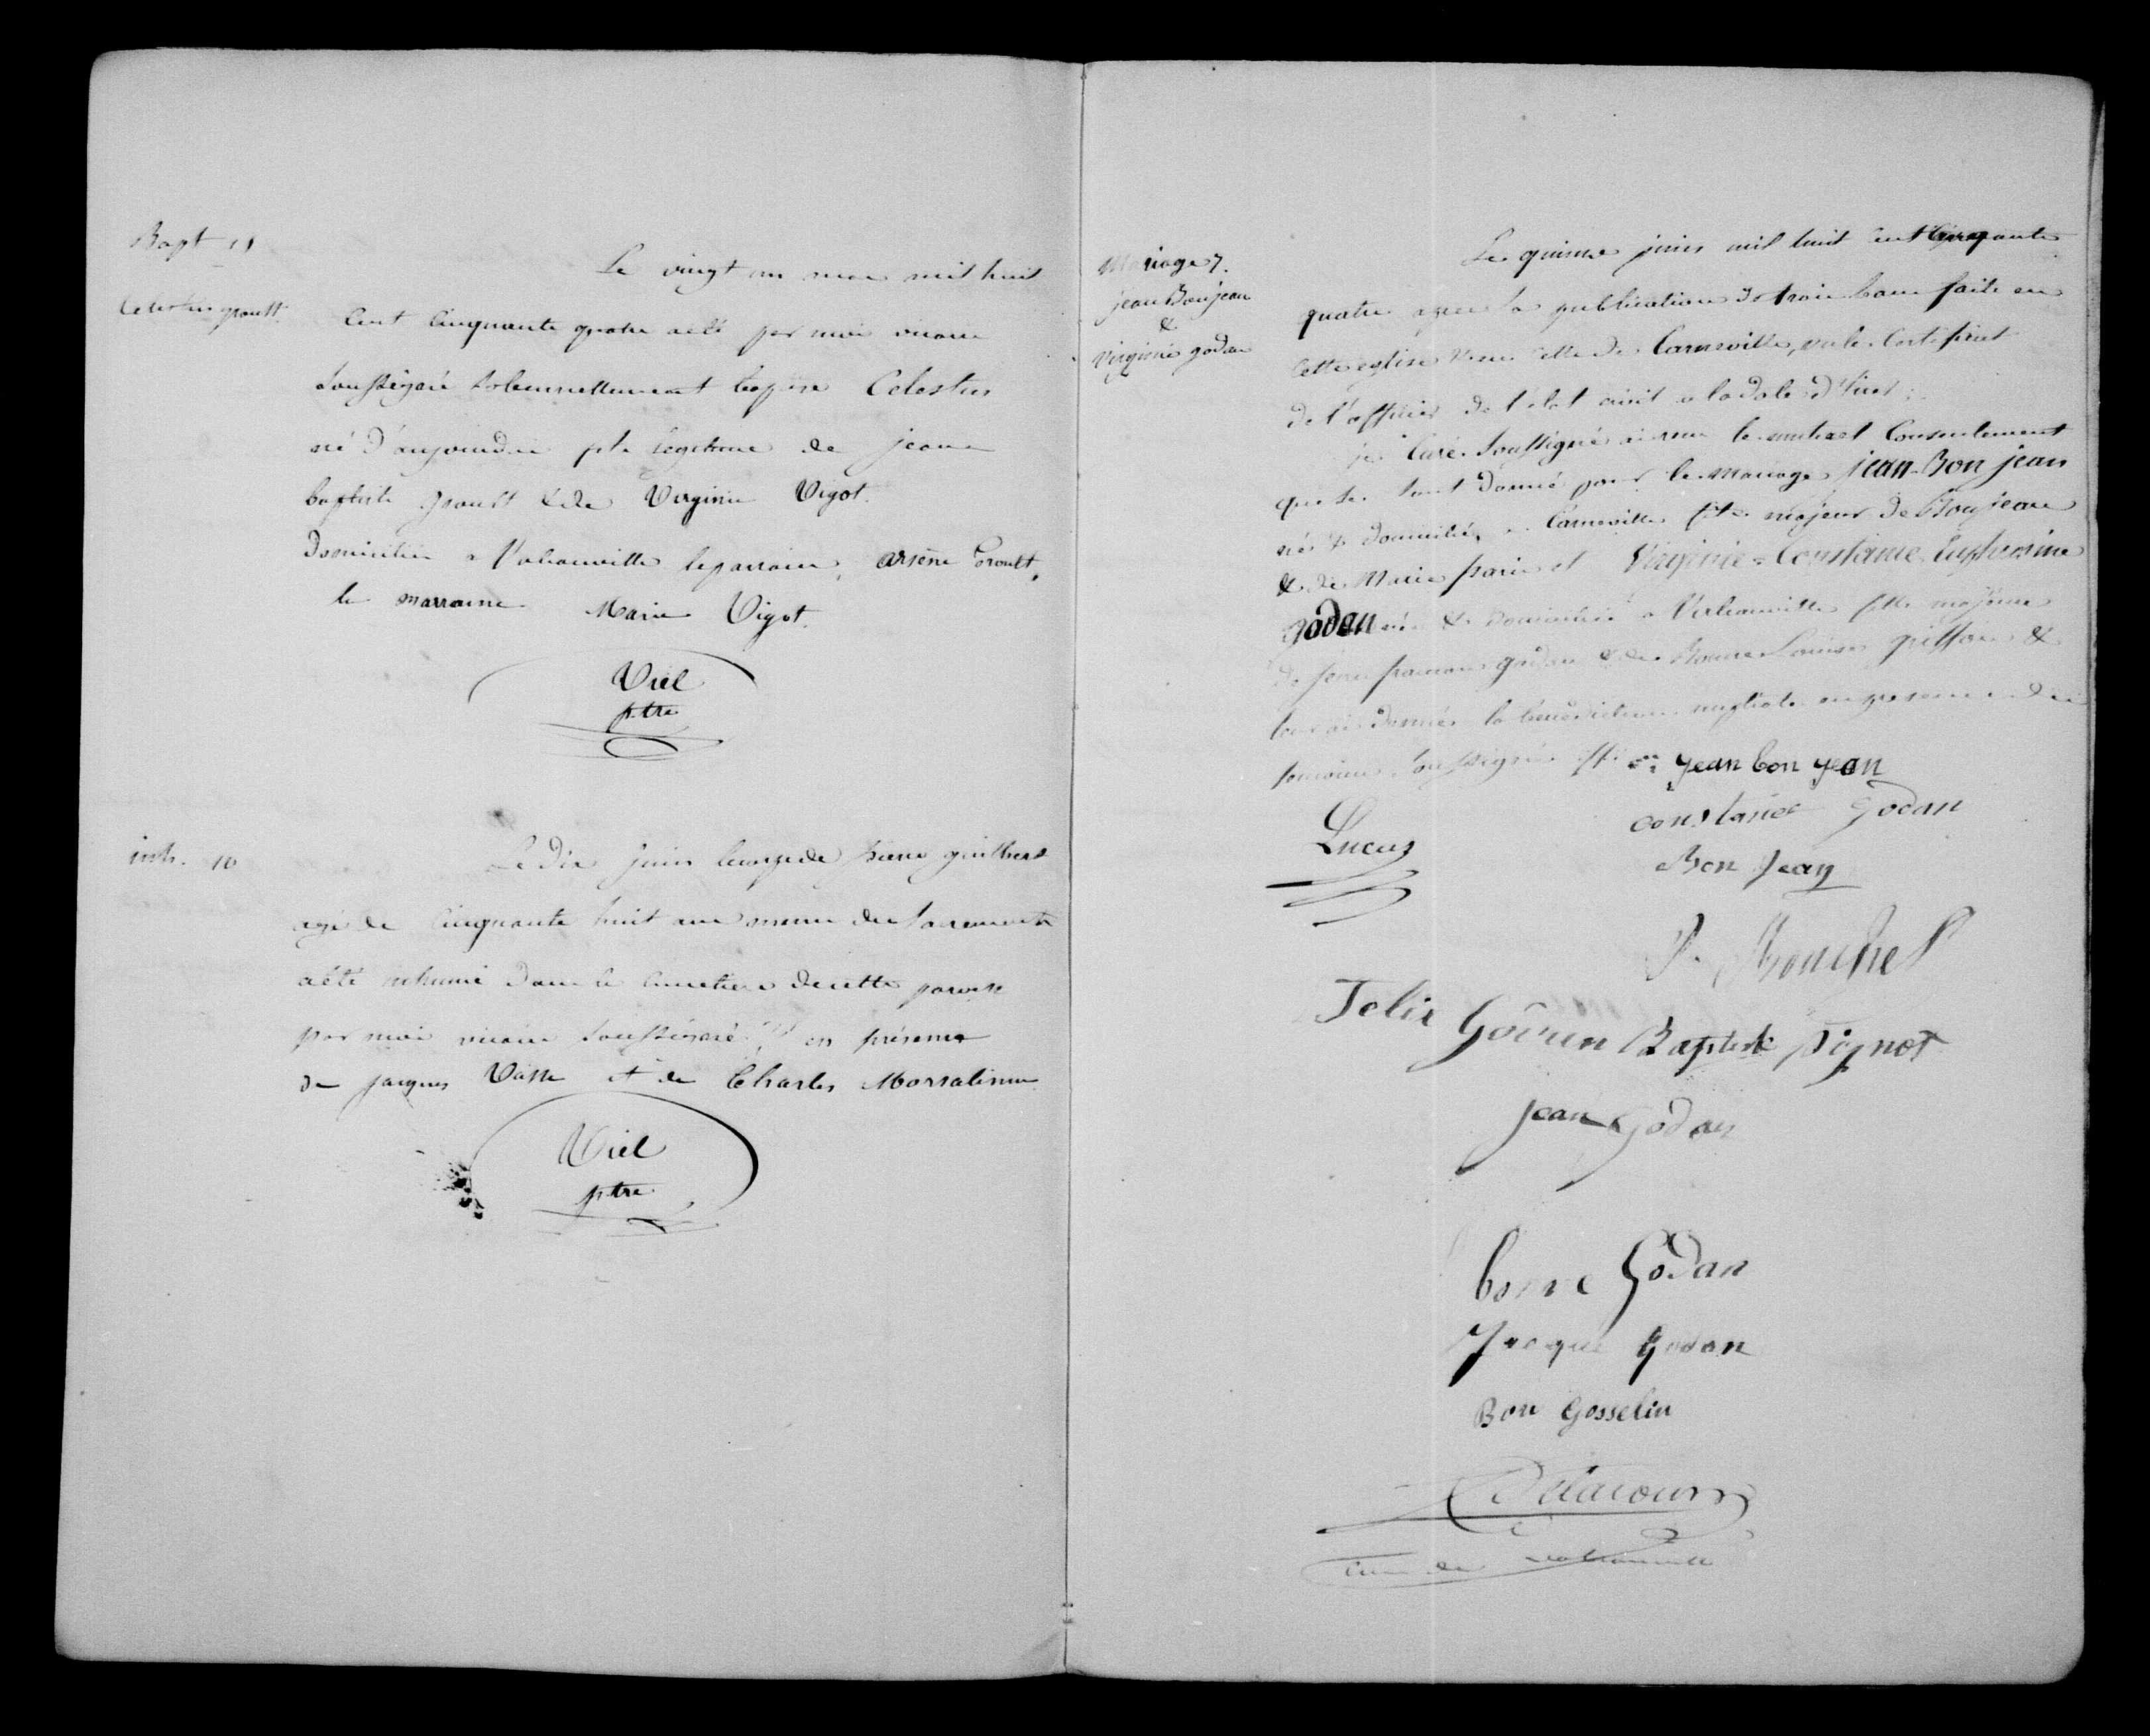 Bapt 11
Celestin groult
Le vingt un mai mil huit
Cent Cinquante quatre a été par moi vicaire
Soussigné Solennellement baptisé Celestin
né d'aujourdui fils legitime de jean
baptiste groult & de Virginie Vigot.
Domiciliés a Valcanville le parrain, arsène Groult,
la marraine Marie Vigot.
Viel
ptre
inh. 10
Le Dix juin le corps de Pierre guilbert
agé de Cinquante huit ans muni des Sacrements
a été inhumé dans le Cimetiere de cette paroisse
par moi vicaire Soussigné en présence
de jacques Vasse et de Charles Morsaline
Viel
ptre
Mariage 7.
jean Bonjean
&
virginie godan
Le quinze juin mil huit cent Cinquante
quatre apres la publication de trois bans faite en
cette eglise & en celle de Carneville, vu le Certificat
de l'officier de l'état civil a la date d'hier;
je Curé Soussigné ai reçu le mutuel Consentement
que se sont donné pour le mariage jean-Bon jean
né & domicilié a Carneville fils majeur de Bonjean
& de Marie et Virginie=Constance Euphrosine
godan née & domiciliée a Valcanville fille majeure
de feu godan & de Bonne Louise &
leur ai donné la bénédiction nuptiale en presence des
temoins Soussignés jean bon jean
Lucas
constance Godan
Bon Jean
P. Bouchet
Felix Goûren Baptiste pignot
jean Godan
bonne Godan
Jacque Godan
Bon Gosselin
Delacour
Curé de Valcanville